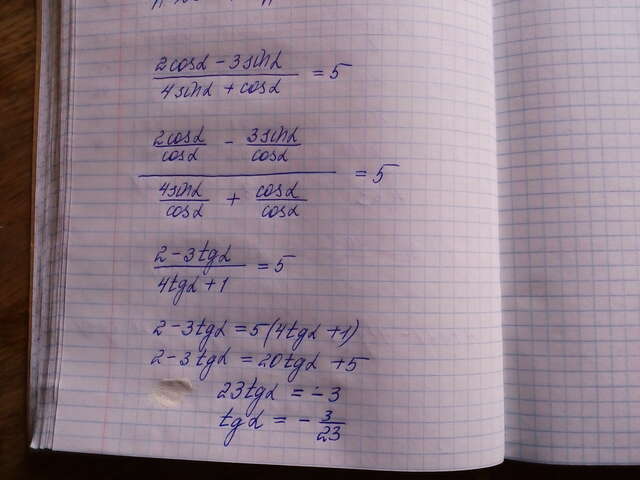 (2cosα - 3sinα)/(4sinα + cosα) = 5
(2cosα/cosα - 3sinα/cosα)/(4sinα/cosα + cosα/cosα) = 5
(2 - 3tgα)/(4tgα + 1) = 5
2 - 3tgα = 5(4tgα + 1)
2 - 3tgα = 20tgα + 5
23tgα = -3
tgα = - 3/23